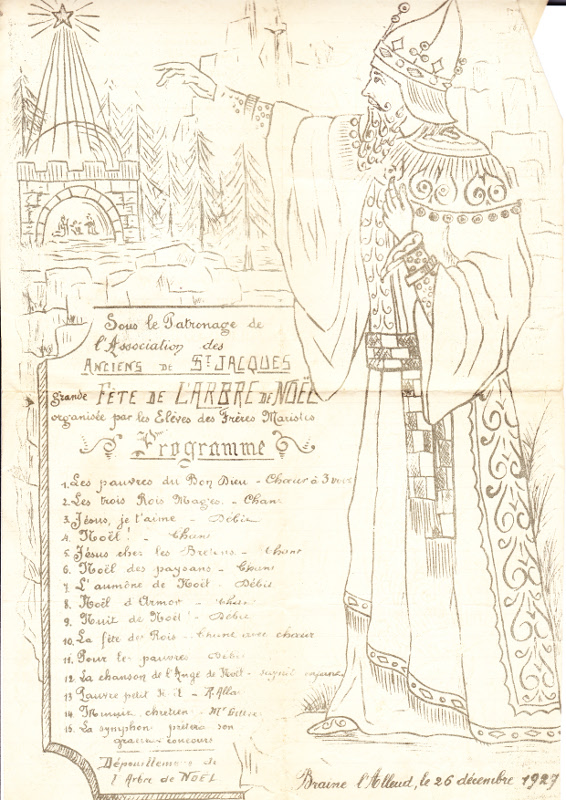 Sous le Patronage de
l'Association des
ANCIENS DE ST JACQUES
Grande FÊTE DE L'ARBRE DE NOËL
organisée par les Elèves des Frères Maristes
Programme
1. Les pauvres du Bon Dieu - Chœur à 3 voix
2. Les trois Rois Mages - Chant
3. Jésus, je t'aime - Débit
4. Noël! - Chant
5. Jésus chez les Bretons - Chant
6. Noël des paysans - Chant
7. L'aumône de Noël - Débit
8. Noël d'Armor - Chant
9. Nuit de Noël! - Débit
10. La fête des Rois - Chant avec chœur
11. Pour les pauvres Débit
12. La chanson de l'Ange de Noël -
13. Pauvre petit
14. chrétien -
15. La symphon. prêtera son
gracieux concours
Dépouillement de
l'Arbre de NOËL
Braine l'Alleud, le 26 décembre 1927